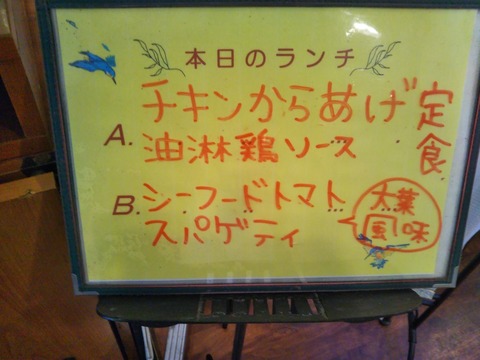 本日のランチ
A. チキンからあげ定食
油淋鶏ソース
B. シーフードトマト
スパゲティ
大葉
風味